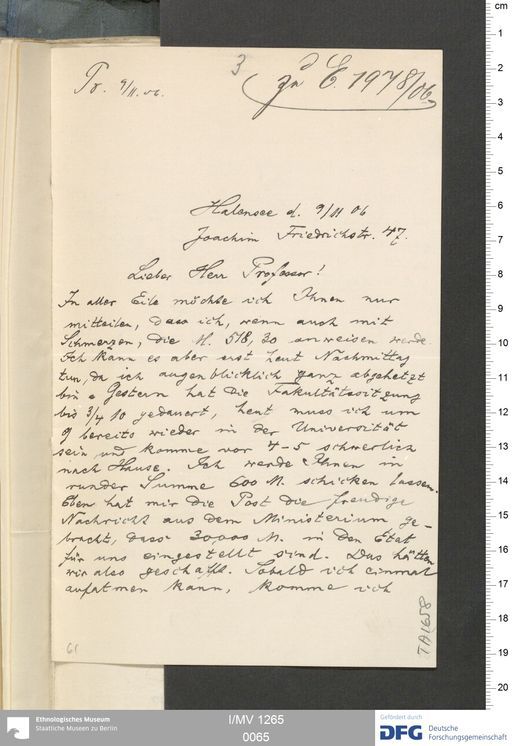 3
Pr. 9/11.06.
zu E. 1978/06
Halensee d. 9/11 06
Joachim Friedrichstr. 47
Lieber Herr Professor!
In aller Eile möchte ich Ihnen nur
mitteilen, dass ich, wenn auch mit
Schmerzen, die M. 518,30 anweisen werde.
Ich kann es aber erst heut Nachmittag
tun, da ich augenblicklich ganz abgehetzt
bin. Gestern hat die Fakultätssitzung
bis 3/4 10 gedauert, heut muss ich um
9 bereits wieder in der Universität
sein und komme vor 4-5 schwerlich
nach Hause. Ich werde Ihnen in
runder Summe 600 M. schicken lassen.
Eben hat mir die Post die freudige
Nachricht aus dem Ministerium ge-
bracht, dass 30,000 M. in den Etat
für uns eingestellt sind. Das hätten
wir also geschafft. Sobald ich einmal
aufatmen kann, komme ich
61
TA1658
cm
1
2
3
4
5
6
7
8
9
10
11
12
13
14
15
16
17
18
19
20
Ethnologisches Museum
Staatliche Museen zu Berlin
I/MV 1265
0065
Gefördert durch
DFG
Deutsche
Forschungsgemeinschaft